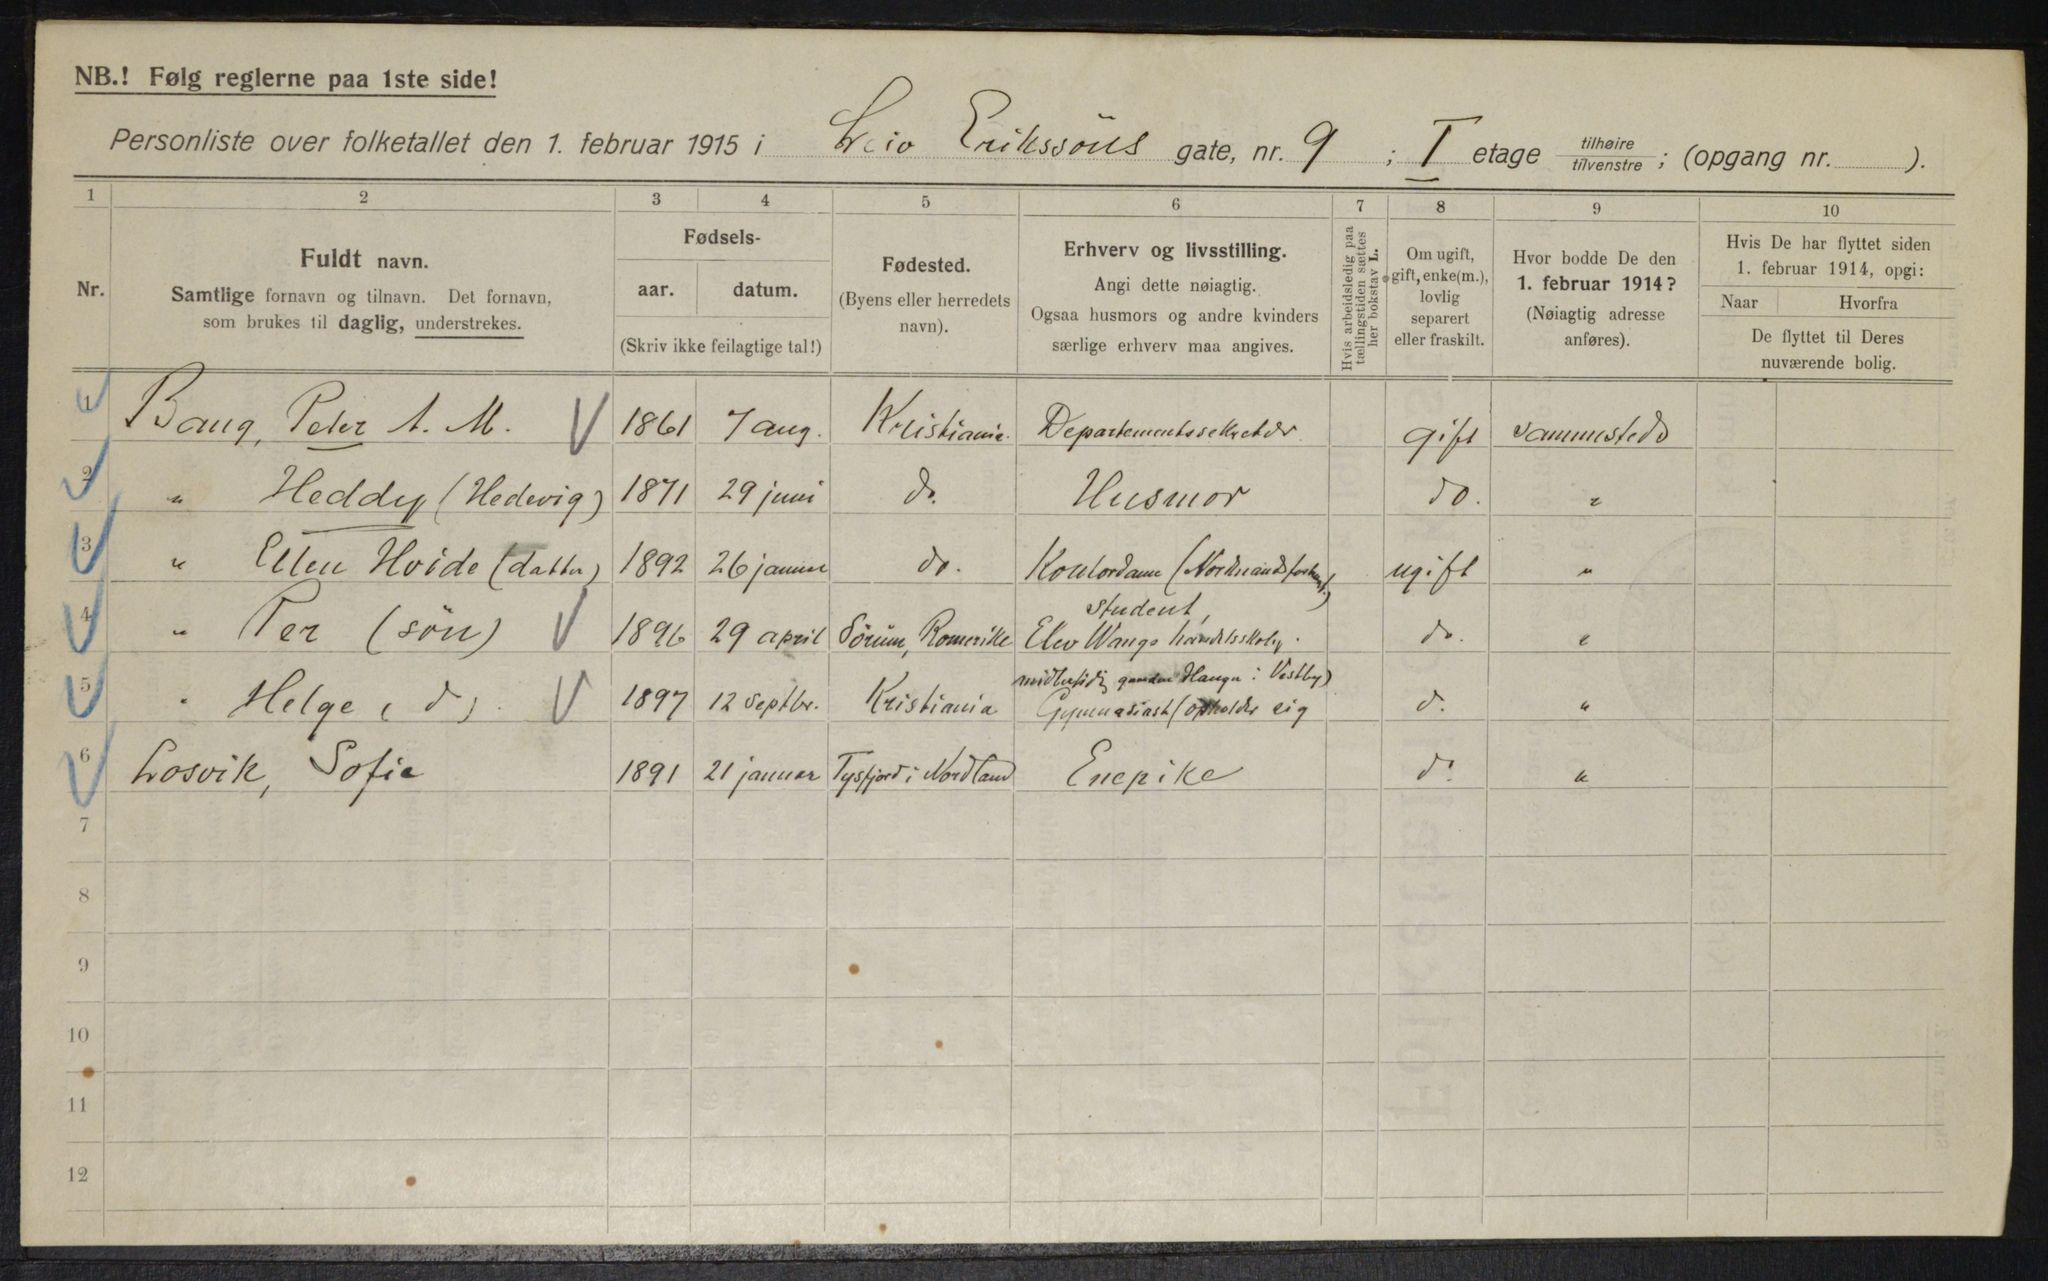 NB.! Følg reglerne paa 1ste side!
Personliste over folketallet den 1. februar 1915 i Leiv Erikssöns gate, nr. 9 ; I etage tilhøire tilvenstre ; (opgang nr. ).
1 2 3 4 5 6 7 8 9 10
Nr.
Fuldt navn.
Samtlige fornavn og tilnavn. Det fornavn,
som brukes til daglig, understrekes.
Fødsels-
aar. datum.
(Skriv ikke feilagtige tal!)
Fødested.
(Byens eller herredets
navn).
Erhverv og livsstilling.
Angi dette nøiagtig.
Ogsaa husmors og andre kvinders
særlige erhverv maa angives.
Hvis arbeidsledig paa
tællingstiden sættes
her bokstav L.
Om ugift,
gift, enke(m.),
lovlig
separert
eller fraskilt.
Hvor bodde De den
1. februar 1914?
(Nøiagtig adresse
anføres).
Hvis De har flyttet siden
1. februar 1914, opgi:
Naar Hvorfra
De flyttet til Deres
nuværende bolig.
1 Bang, Peter A. M. 1861 7 aug. Kristiania. Departementssekretær gift sammesteds
2 " Heddy (Hedevig) 1871 29 juni do. Husmor do. "
3 " Ellen Hvide (datter) 1892 26 januar do. Kontordame ugift "
student,
4 " Per (sön) 1896 29 april Sörum, Romerike Elev Wangs handelsskole. do. "
midlertidig Hangen i Vestby)
5 " Helge (d) 1897 12 septbr. Kristiania Gymnasiast (opholder sig d. "
6 Losvik, Sofie 1891 21 januar Tysfjord i Nordland Enepike do. "
7
8
9
10
11
12